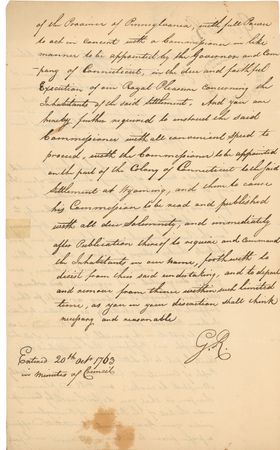 of the Province of Pennsylvania, with full Power
to act in concert with a Commissioner in like
manner to be appointed by the Governor and Com-
pany of Connecticut, in the due and faithful
Execution of our Royal Pleasure concerning the
Inhabitants of the said Settlement. And you are
hereby further required to instruct our said
Commissioner with all convenient speed to
proceed, with the Commissioner to be appointed
on the part of the Colony of Connecticut to the said
Settlement at Wyoming, and there to cause
his Commission to be read and published
with all due Solemnity, and immediately
after Publication thereof to require and command
the Inhabitants in our name, forthwith to
desist from their said undertaking, and to depart
and remove from thence within such limited
time, as you in your discretion shall think
necessary and reasonable
G. R.
Entered 20th Octr 1763
in Minutes of Council